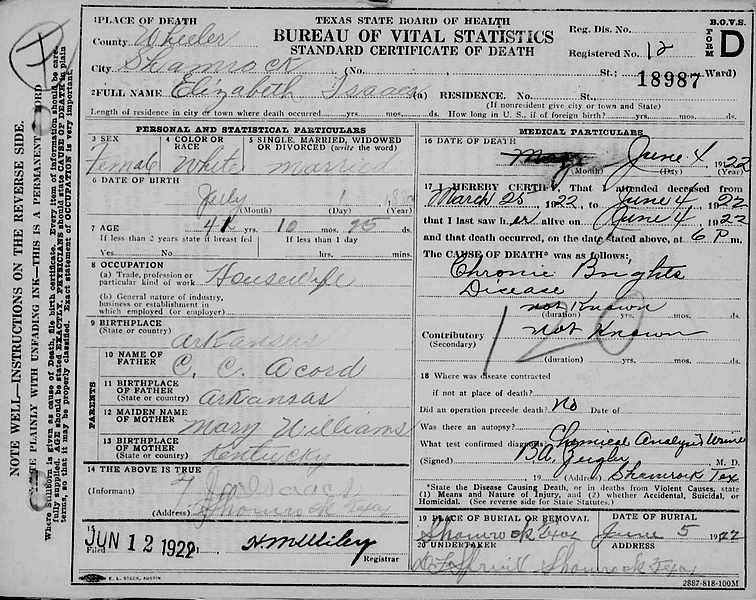 TEXAS STATE BOARD OF HEALTH
BUREAU OF VITAL STATISTICS
STANDARD CERTIFICATE OF DEATH
B.O.V.S.
FORM D
Reg. Dis. No.
Registered No. 12
18987
1 PLACE OF DEATH
County Wheeler
City Shamrock (No. St.; Ward)
2 FULL NAME Elizabeth Isaacs (a) RESIDENCE. No. St.
(If nonresident give city or town and State)
Length of residence in city or town where death occurred yrs. mos. ds. How long in U. S., if of foreign birth? yrs. mos. ds.
PERSONAL AND STATISTICAL PARTICULARS
3 SEX
Female
4 COLOR OR RACE
White
5 SINGLE, MARRIED, WIDOWED OR DIVORCED (write the word)
Married
6 DATE OF BIRTH
July 1
(Month) (Day) (Year)
7 AGE
41 yrs. 10 mos. 25 ds.
If less than 2 years state if breast fed
If less than 1 day
Yes No hrs. mins.
8 OCCUPATION
(a) Trade, profession or particular kind of work
Housewife
(b) General nature of industry, business or establishment in which employed (or employer)
9 BIRTHPLACE
(State or country)
Arkansas
PARENTS
10 NAME OF FATHER
C. C. Acord
11 BIRTHPLACE OF FATHER
(State or country)
Arkansas
12 MAIDEN NAME OF MOTHER
Mary Williams
13 BIRTHPLACE OF MOTHER
(State or country)
Kentucky
14 THE ABOVE IS TRUE
(Informant) Isaacs
(Address) Shamrock Texas
15
Filed JUN 12 1922
Registrar
MEDICAL PARTICULARS
16 DATE OF DEATH
June 4 1922
(Month) (Day) (Year)
17 I HEREBY CERTIFY, That I attended deceased from
March 25 1922 to June 4 1922
that I last saw her alive on June 4 1922
and that death occurred, on the date stated above, at 6 P m.
The CAUSE OF DEATH* was as follows:
Chronic Brights
Disease
not Known
(duration) yrs. mos. ds.
Contributory not Known
(Secondary)
(duration) yrs. mos. ds.
18 Where was disease contracted
if not at place of death?
Did an operation precede death? No Date of
Was there an autopsy?
What test confirmed diagnosis? Chemical Analysis Urine
(Signed) B.A. Zeigler M. D.
19 (Address) Shamrock Tex
*State the Disease Causing Death, or in deaths from Violent Causes, state (1) Means and Nature of Injury, and (2) whether Accidental, Suicidal, or Homicidal. (See reverse side for State Statutes).
19 PLACE OF BURIAL OR REMOVAL
Shamrock Texas
DATE OF BURIAL
June 5 1922
20 UNDERTAKER
ADDRESS
Shamrock Texas
E. L. STECK, AUSTIN
2887-818-100M
NOTE WELL—INSTRUCTIONS ON THE REVERSE SIDE.
PLAINLY WITH UNFADING INK—THIS IS A PERMANENT
Where Stillborn is given as cause of Death, file birth certificate. Every item of information should be carefully supplied. AGE should be stated EXACTLY. PHYSICIANS should state CAUSE OF DEATH in plain terms, so that it may be properly classified. Exact statement of OCCUPATION is very important.